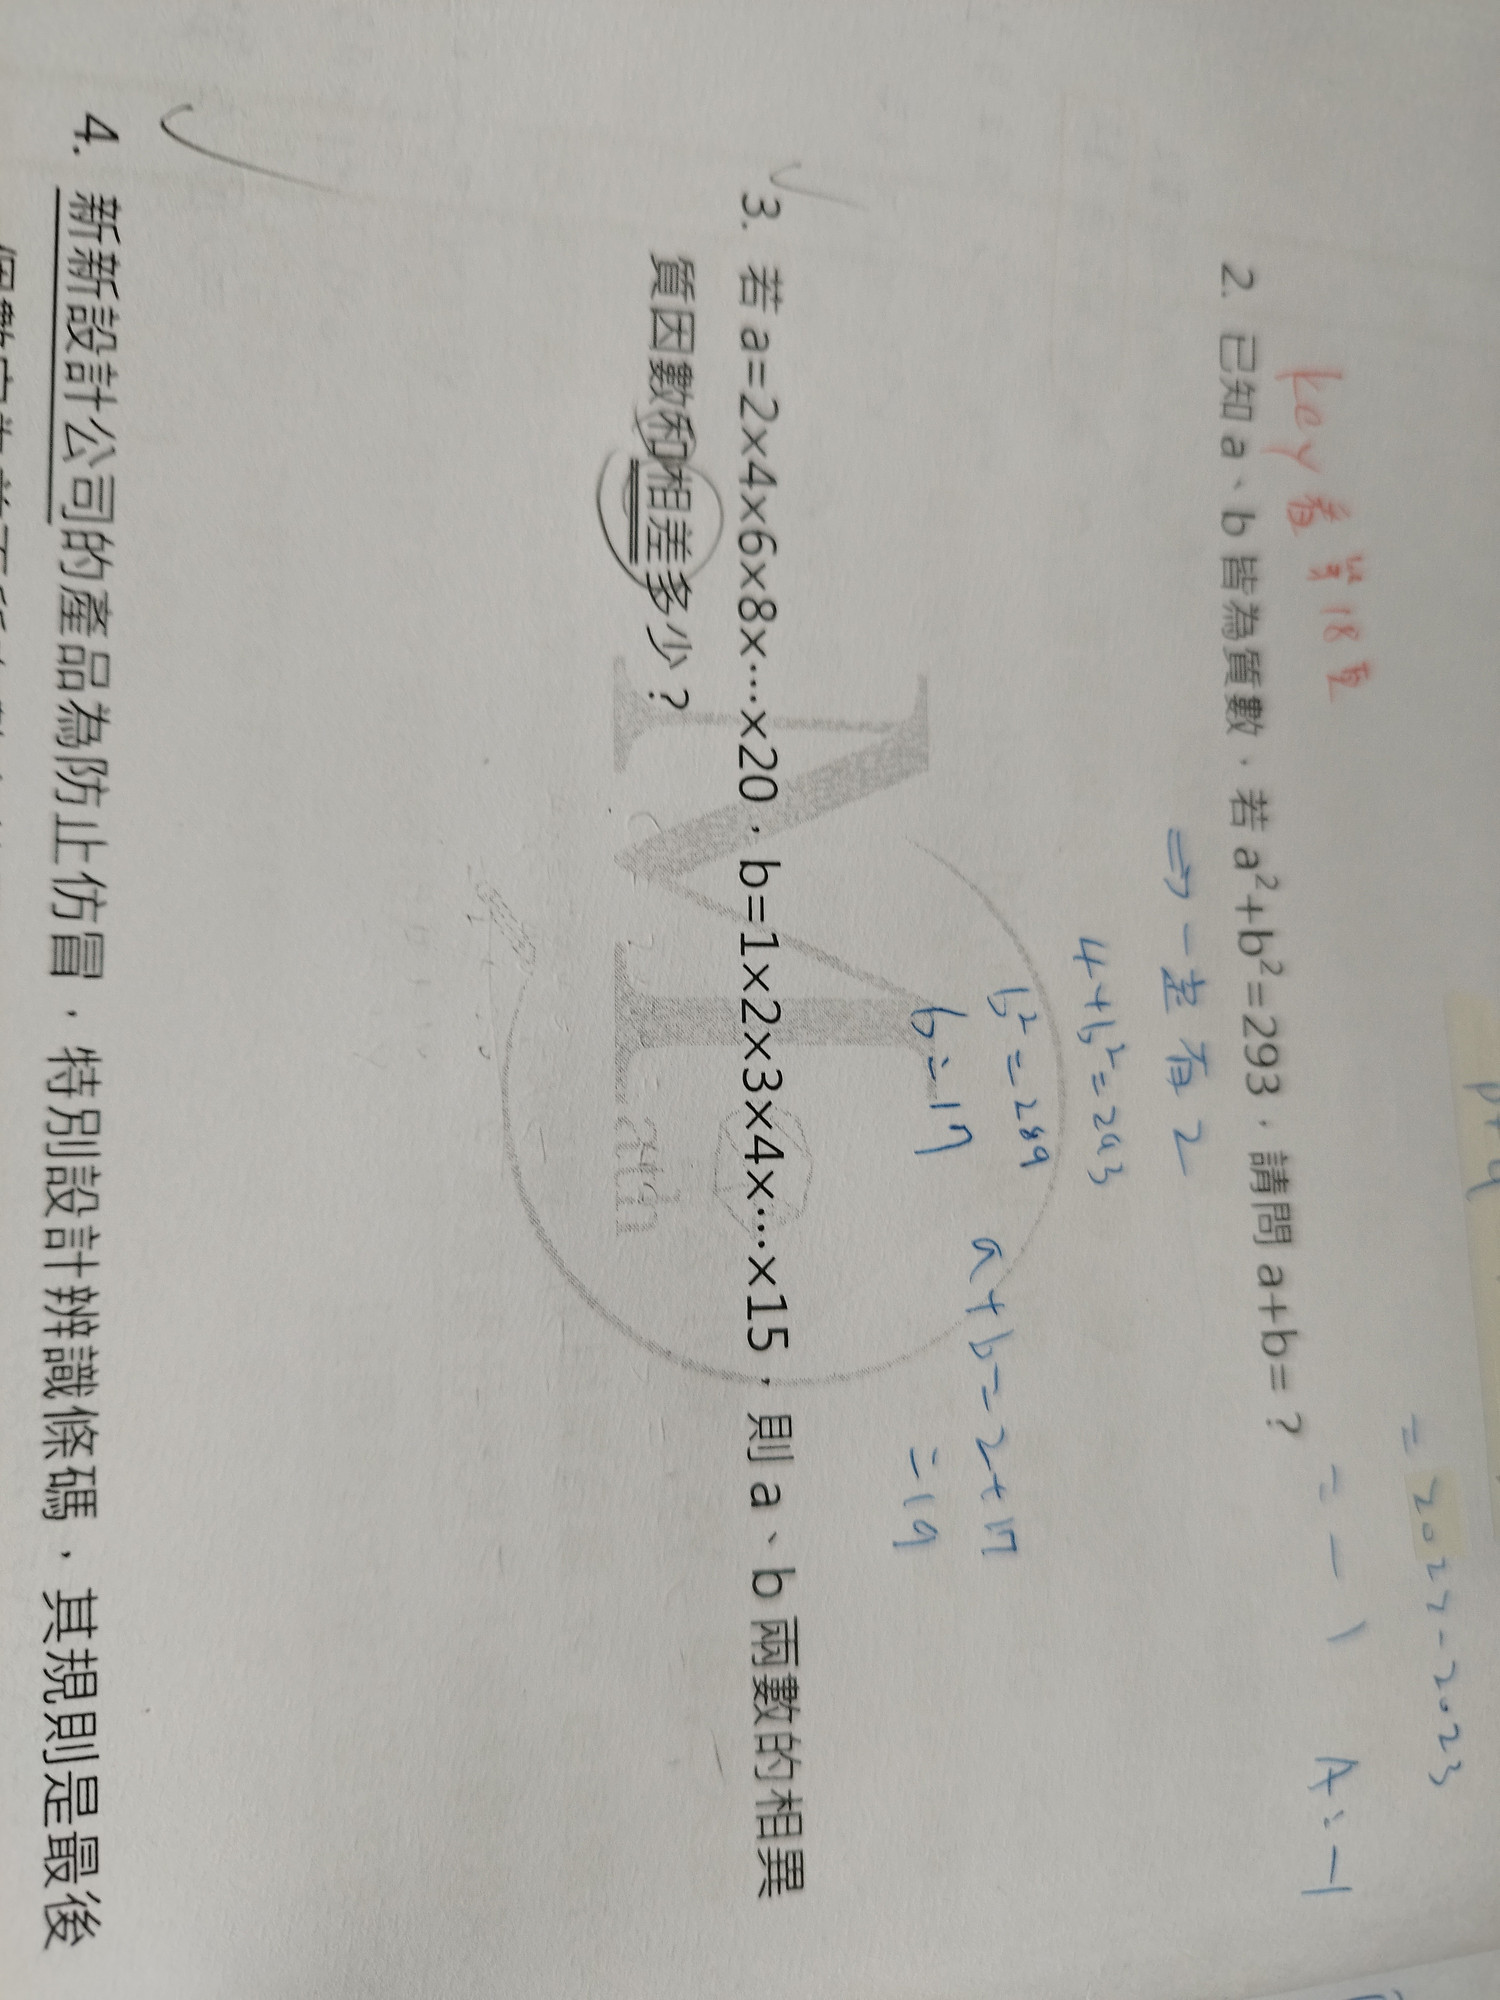 = 2022-2023
= -1
A:-1
key 看第18頁
2. 已知 a、b 皆為質數，若 a²+b²=293，請問 a+b=？
⇒ 一定有 2
4+b²=293
b²=289
b=17
a+b=2+17
=19
3. 若 a=2×4×6×8×…×20，b=1×2×3×4×…×15，則 a、b 兩數的相異
質因數和相差多少？
Math
4. 新新設計公司的產品為防止仿冒，特別設計辨識條碼，其規則是最後